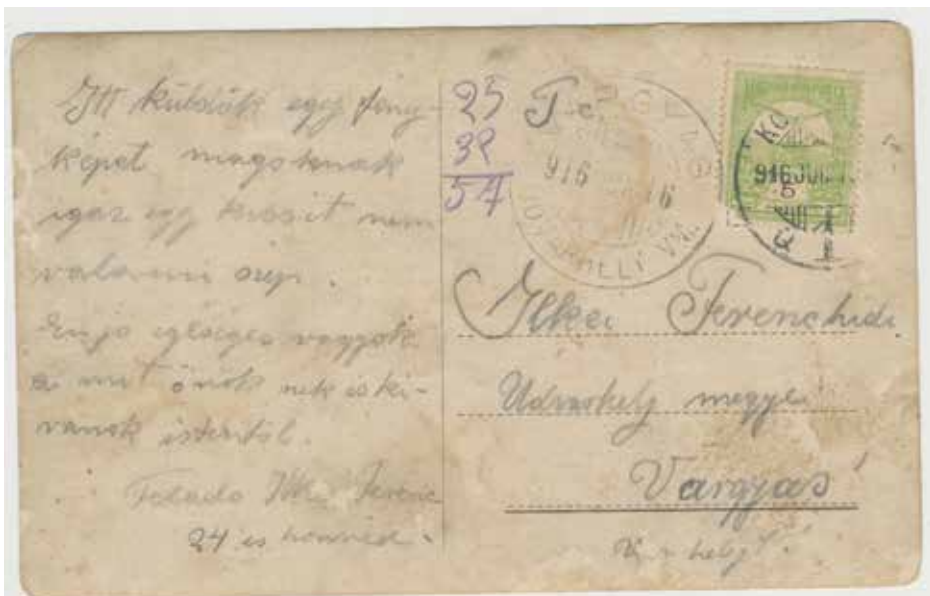 Itt küldök egy fény-
képet magoknak
igaz egy kissit nem
valami szep.
En jo egeseges vagyok
a mit önök nek is ki-
vanok istentöl.
Felado Ilkei Ferenc
24 es honvéd.
25
32
57
T. c.
916
16
VM.
916 JUL
Ilkei Ferenc
Udvarhely megye
Vargyas